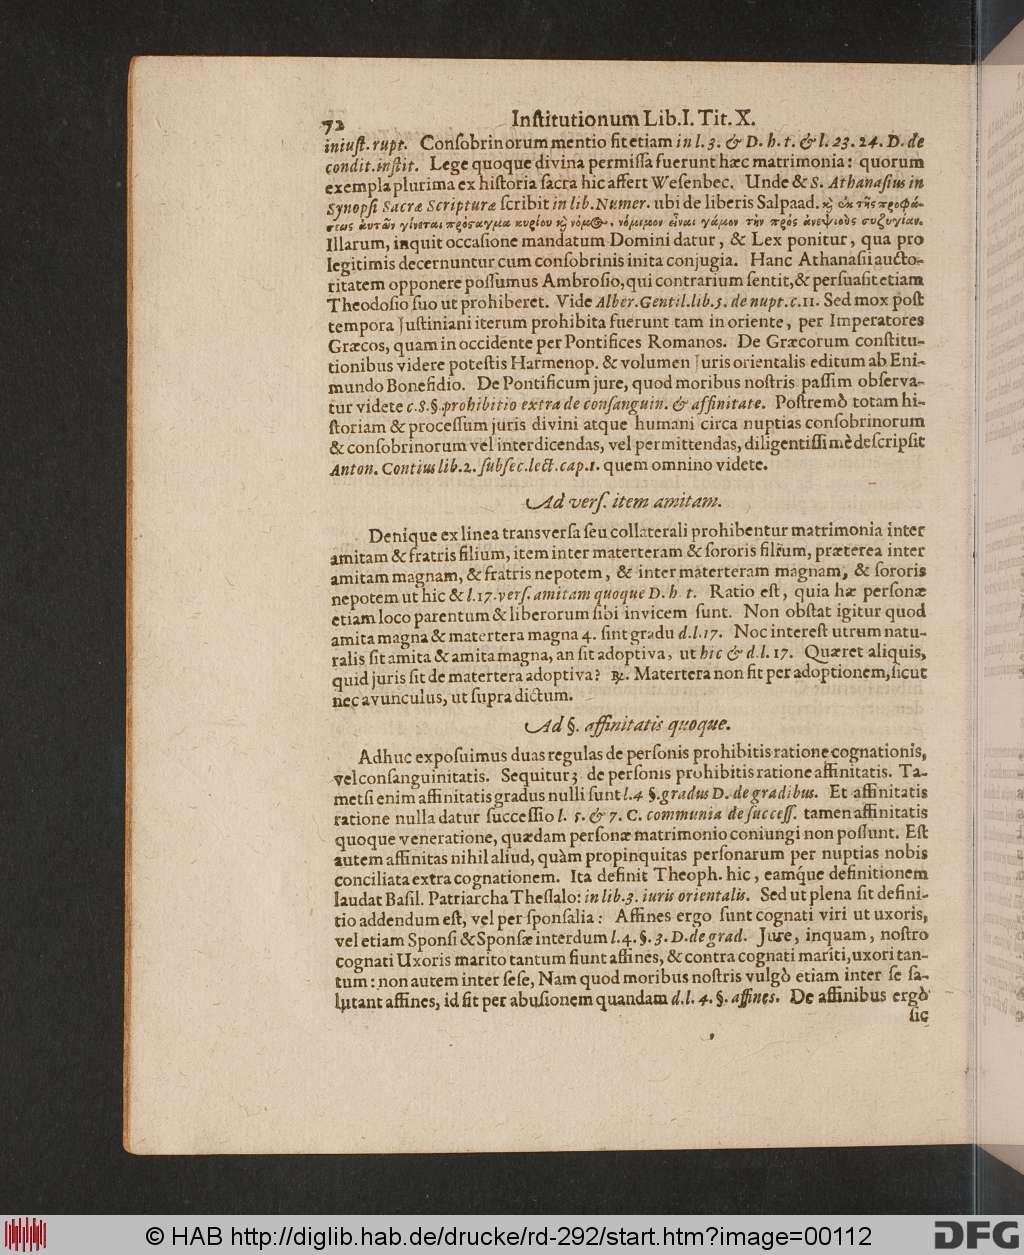 72 Inſtitutionum Lib. I. Tit. X.
iniuſt. rupt. Conſobrinorum mentio fit etiam in l. 3. & D. h. t. & l. 23. 24. D. de
condit. inſtit. Lege quoque divina permiſſa fuerunt hæc matrimonia: quorum
exempla plurima ex hiſtoria ſacra hic affert Weſenbec. Unde & S. Athanaſius in
Synopſi Sacræ Scripturæ ſcribit in lib. Numer. ubi de liberis Salpaad. ϗ ἐκ τῆς προφά-
σεως αὐτῶν γίνεται πρόσαγμα κυρίου ϗ νόμος, νόμιμον εἶναι γάμον τὴν πρός ἀνεψιοὺς συζυγίαν.
Illarum, inquit occaſione mandatum Domini datur, & Lex ponitur, qua pro
legitimis decernuntur cum conſobrinis inita conjugia. Hanc Athanaſii aucto-
ritatem opponere poſſumus Ambroſio, qui contrarium ſentit, & perſuaſit etiam
Theodoſio ſuo ut prohiberet. Vide Alber. Gentil. lib. 5. de nupt. c. 11. Sed mox poſt
tempora Juſtiniani iterum prohibita fuerunt tam in oriente, per Imperatores
Græcos, quam in occidente per Pontifices Romanos. De Græcorum conſtitu-
tionibus videre poteſtis Harmenop. & volumen Juris orientalis editum ab Eni-
mundo Bonefidio. De Pontificum jure, quod moribus noſtris paſſim obſerva-
tur videte c. 8. §. prohibitio extra de conſanguin. & affinitate. Poſtremò totam hi-
ſtoriam & proceſſum juris divini atque humani circa nuptias conſobrinorum
& conſobrinorum vel interdicendas, vel permittendas, diligentiſſimè deſcripſit
Anton. Contius lib. 2. ſubſec. lect. cap. 1. quem omnino videte.
Ad verſ. item amitam.
Denique ex linea transverſa ſeu collaterali prohibentur matrimonia inter
amitam & fratris filium, item inter materteram & ſororis filium, præterea inter
amitam magnam, & fratris nepotem, & inter materteram magnam, & ſororis
nepotem ut hic & l. 17. verſ. amitam quoque D. h. t. Ratio eſt, quia hæ perſonæ
etiam loco parentum & liberorum ſibi invicem ſunt. Non obſtat igitur quod
amita magna & matertera magna 4. ſint gradu d. l. 17. Noc intereſt utrum natu-
ralis ſit amita & amita magna, an ſit adoptiva, ut hic & d. l. 17. Quæret aliquis,
quid juris ſit de matertera adoptiva? ℞. Matertera non fit per adoptionem, ſicut
nec avunculus, ut ſupra dictum.
Ad §. affinitatis quoque.
Adhuc expoſuimus duas regulas de perſonis prohibitis ratione cognationis,
vel conſanguinitatis. Sequitur 3 de perſonis prohibitis ratione affinitatis. Ta-
metſi enim affinitatis gradus nulli ſunt l. 4 §. gradus D. de gradibus. Et affinitatis
ratione nulla datur ſucceſſio l. 5. & 7. C. communia de ſucceſſ. tamen affinitatis
quoque veneratione, quædam perſonæ matrimonio coniungi non poſſunt. Eſt
autem affinitas nihil aliud, quàm propinquitas perſonarum per nuptias nobis
conciliata extra cognationem. Ita definit Theoph. hic, eamq́ue definitionem
laudat Baſil. Patriarcha Theſſalo: in lib. 3. iuris orientalis. Sed ut plena ſit defini-
tio addendum eſt, vel per ſponſalia: Affines ergo ſunt cognati viri ut uxoris,
vel etiam Sponſi & Sponſæ interdum l. 4. §. 3. D. de grad. Jure, inquam, noſtro
cognati Uxoris marito tantum fiunt affines, & contra cognati mariti, uxori tan-
tum: non autem inter ſeſe, Nam quod moribus noſtris vulgò etiam inter ſe ſa-
lutant affines, id fit per abuſionem quandam d. l. 4. §. affines. De affinibus ergò
ſic
© HAB http://diglib.hab.de/drucke/rd-292/start.htm?image=00112
DFG